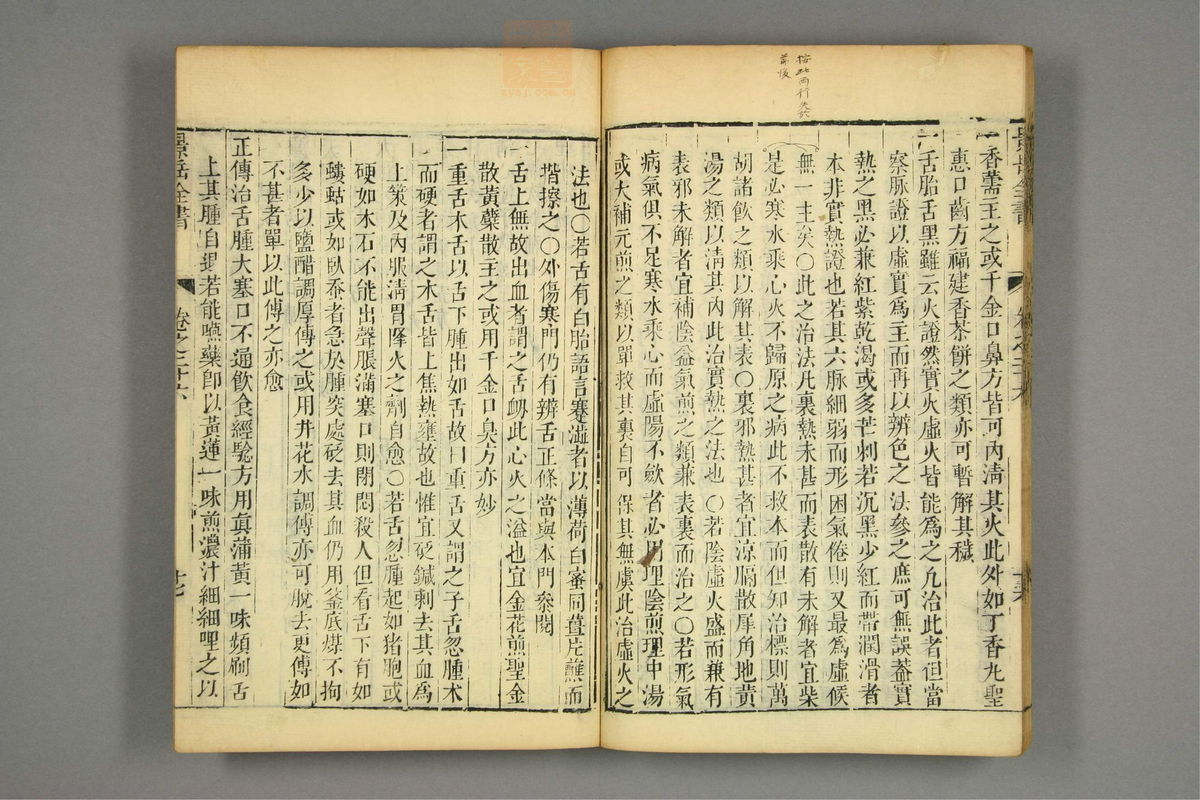 按此兩行失於
前後
一香薷一主之或千金口臭方皆可內淸其火此外如丁香丸聖
惠口齒方福建香茶餠之類亦可暫解其穢
一舌胎舌黑雖云火證然實火虛火皆能爲之凡治此者但當
察脉證以虛實爲主而再以辨色之法參之庶可無誤葢實
熱之黑必兼紅紫乾渴或多芒刺若沉黑少紅而帶潤滑者
本非實熱證也若其六脉細弱而形困氣倦則又最爲虛候
是必寒水乘心火不歸原之病此不救本而但知治標則萬
無一主矣○此之治法凡裏熱未甚而表散有未解者宜柴
胡諸飮之類以解其表○裏邪熱甚者宜涼膈散犀角地黄
湯之類以淸其內此治實熱之法也○若陰虛火盛而兼有
表邪未解者宜補陰益氣煎之類兼表裏而治之○若形氣
病氣俱不足寒水乘心而虛陽不歛者必用理陰煎理中湯
或大補元煎之類以單救其裏自可保其無虞此治虛火之
法也○若舌有白胎語言蹇澁者以薄荷白蜜同薑片蘸而
揩擦之○外傷寒門仍有辨舌正條當與本門叅閱
一舌上無故出血者謂之舌衂此心火之溢也宜金花煎聖金
散黄蘗散主之或用千金口臭方亦妙
一重舌木舌以舌下腫出如舌故曰重舌又謂之子舌忽腫木
而硬者謂之木舌皆上焦熱壅故也惟宜砭鍼刺去其血爲
上策及內服淸胃降火之劑自愈○若舌忽腫起如猪胞或
硬如木石不能出聲脹滿塞口則閉悶殺人但看舌下有如
螻蛄或如臥蚕者急於腫突處砭去其血仍用釜底煤不拘
多少以鹽醋調厚傅之或用井花水調傅亦可脫去更傅如
不甚者單以此傅之亦愈
正傳治舌腫大塞口不通飮食經騐方用眞蒲黄一味頻刷舌
上其腫自退若能嚥藥卽以黄連一味煎濃汁細細呷之以
景岳全書
卷之二十六
廿七